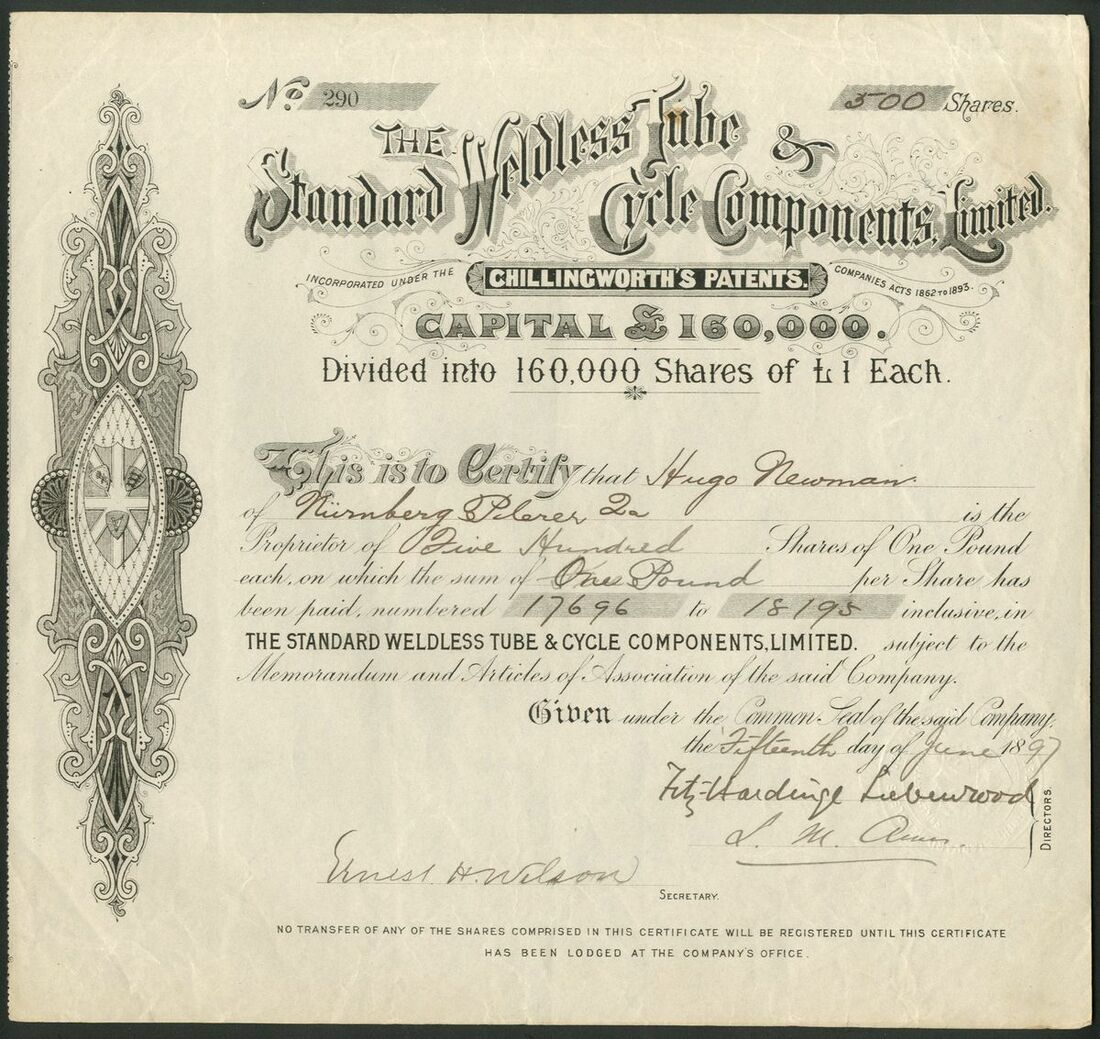 No. 290
500 Shares.
THE Standard Weldless Tube & Cycle Components, Limited.
INCORPORATED UNDER THE CHILLINGWORTH'S PATENTS. COMPANIES ACTS 1862 TO 1893.
CAPITAL £ 160,000.
Divided into 160,000 Shares of £1 Each.
This is to Certify that Hugo Newman
of Nürnberg 2a is the
Proprietor of Five Hundred Shares of One Pound
each, on which the sum of One Pound per Share has
been paid, numbered 17696 to 18195 inclusive, in
THE STANDARD WELDLESS TUBE & CYCLE COMPONENTS, LIMITED. subject to the
Memorandum and Articles of Association of the said Company.
Given under the Common Seal of the said Company,
the Fifteenth day of June 1897
Fitz-Hardinge
L. M.
DIRECTORS.
Ernest H. Wilson
SECRETARY.
NO TRANSFER OF ANY OF THE SHARES COMPRISED IN THIS CERTIFICATE WILL BE REGISTERED UNTIL THIS CERTIFICATE
HAS BEEN LODGED AT THE COMPANY'S OFFICE.